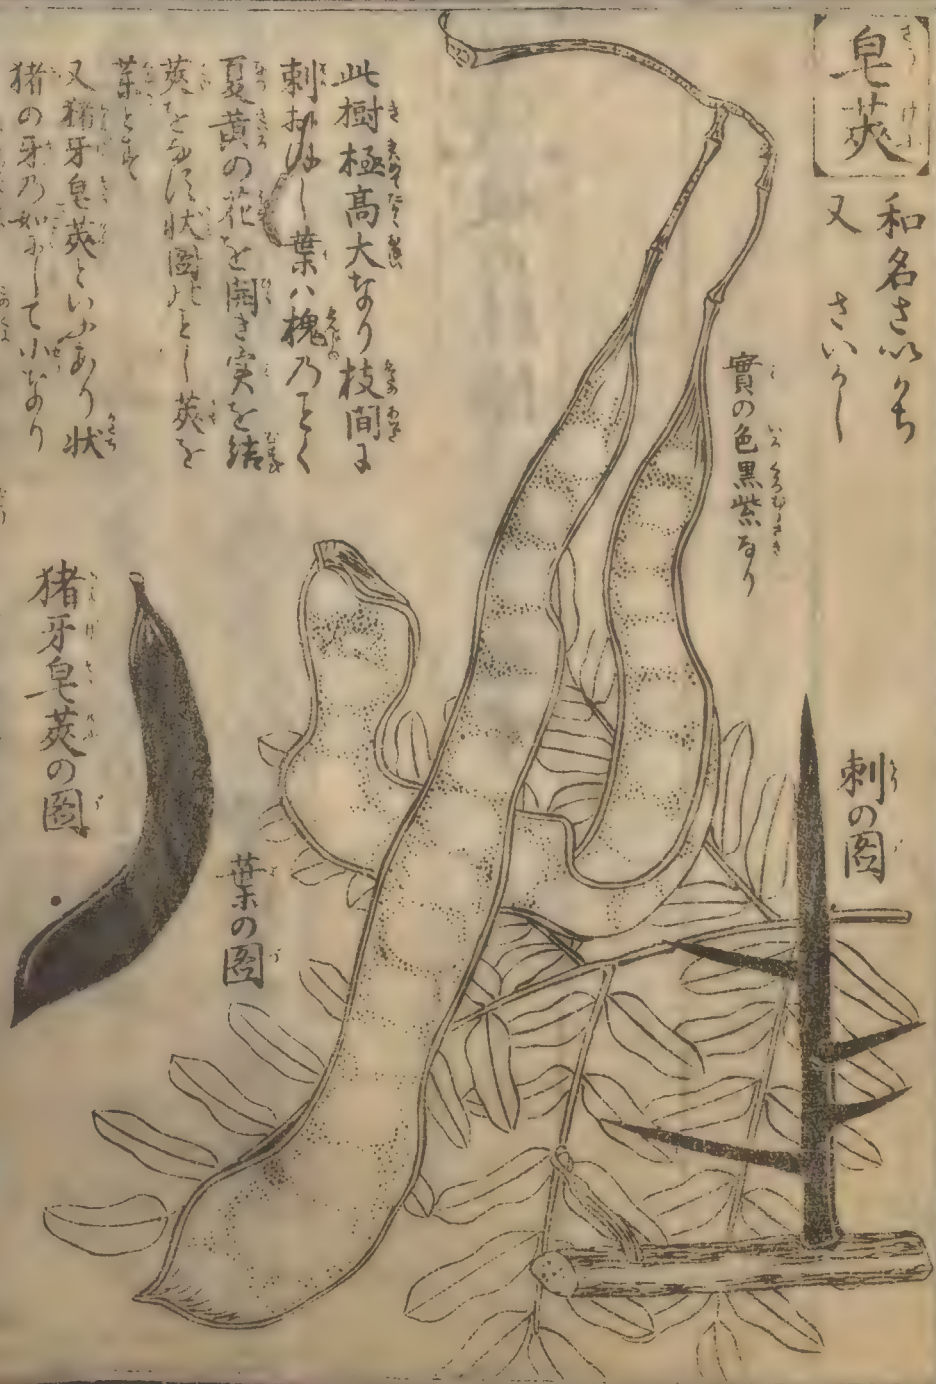 皂莢
和名さいかち
又 さいかし
實の色黒紫なり
刺の圖
此樹極高大なり枝間に
刺おゝし葉ハ槐乃ごとく
夏黄の花を開き実を結
莢をなす状圖のごとし莢を
薬とす
又猪牙皂莢といふあり状
猪の牙乃如にして小なり
葉の圖
猪牙皂莢の圖